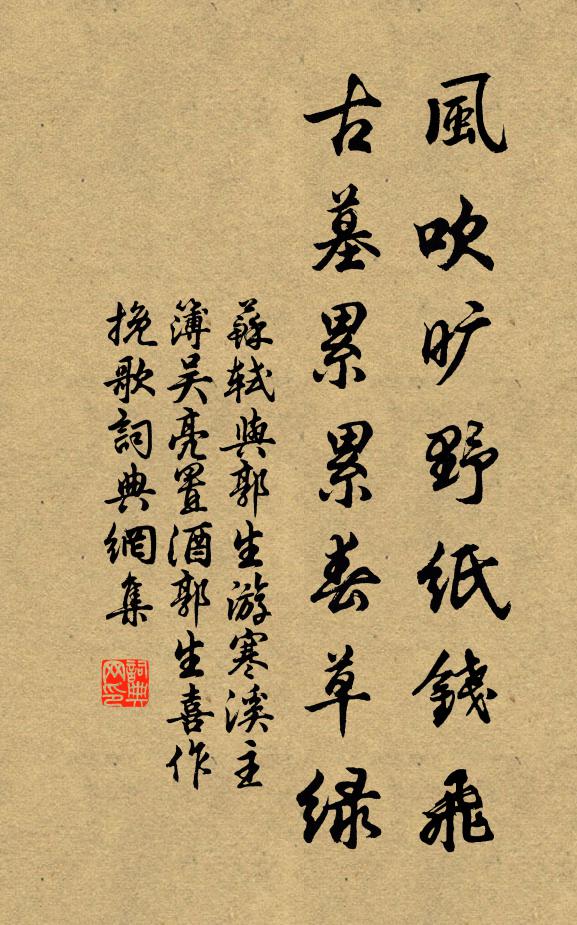 風吹旷野纸錢飛
古墓累累春草绿
蘇軾與郭生游寒溪主
簿吴亮置酒郭生喜作
挽歌詞典網集
詞典
网印